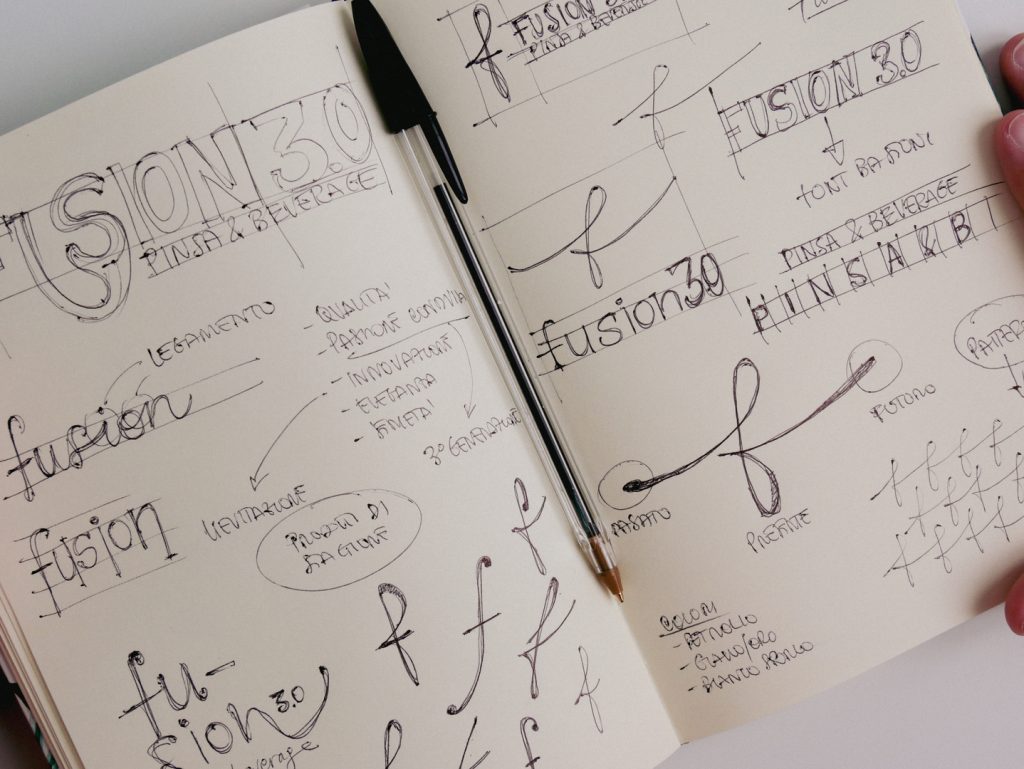 FUSION 3.0
PINSA & BEVERAGE
LEGAMENTO
- QUALITA'
- PASSIONE
- INNOVAZIONE
- ELEGANZA
3° GENERAZIONE
fusion
LIEVITAZIONE
PRODOTTI DI
STAGIONE
fusion
f
f
f
f
fu-
sion 3.0
beverage
f
FUSION 3.0
PINSA & BEVERAGE
f
FUSION 3.0
FONT BASTONI
f
PINSA & BEVERAGE
PINSA & B
fusion 3.0
PATTERN
f
PASSATO
PRESENTE
FUTURO
f f f f
f f f f
f f f f
COLORI
- PETROLIO
- GIALLO/ORO
- BIANCO SPORCO